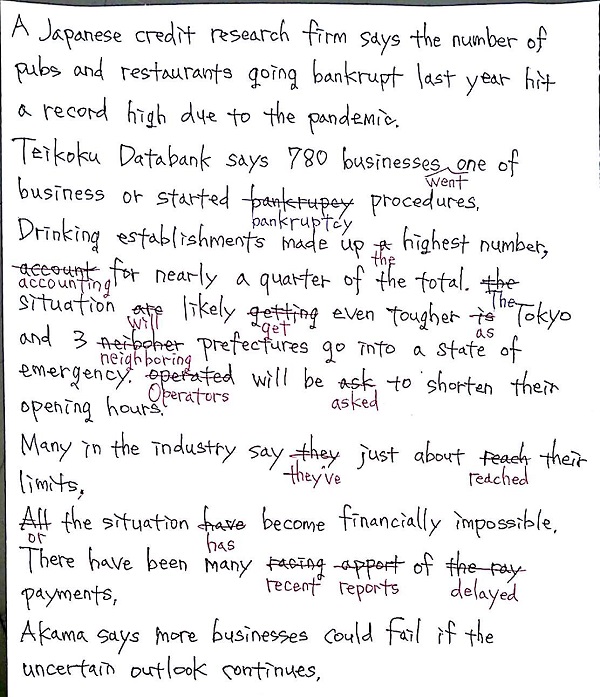 A Japanese credit research firm says the number of
pubs and restaurants going bankrupt last year hit
a record high due to the pandemic.
Teikoku Databank says 780 businesses one of
went
business or started bankrupcy procedures.
bankruptcy
Drinking establishments made up a highest number,
the
account for nearly a quarter of the total. the
accounting The
situation are likely getting even tougher is Tokyo
will get as
and 3 neiboher prefectures go into a state of
neighboring
emergency. operated will be ask to shorten their
Operators asked
opening hours.
Many in the industry say they just about reach their
they've reached
limits,
All the situation have become financially impossible.
or has
There have been many racing apport of the ray
recent reports delayed
payments,
Akama says more businesses could fail if the
uncertain outlook continues,